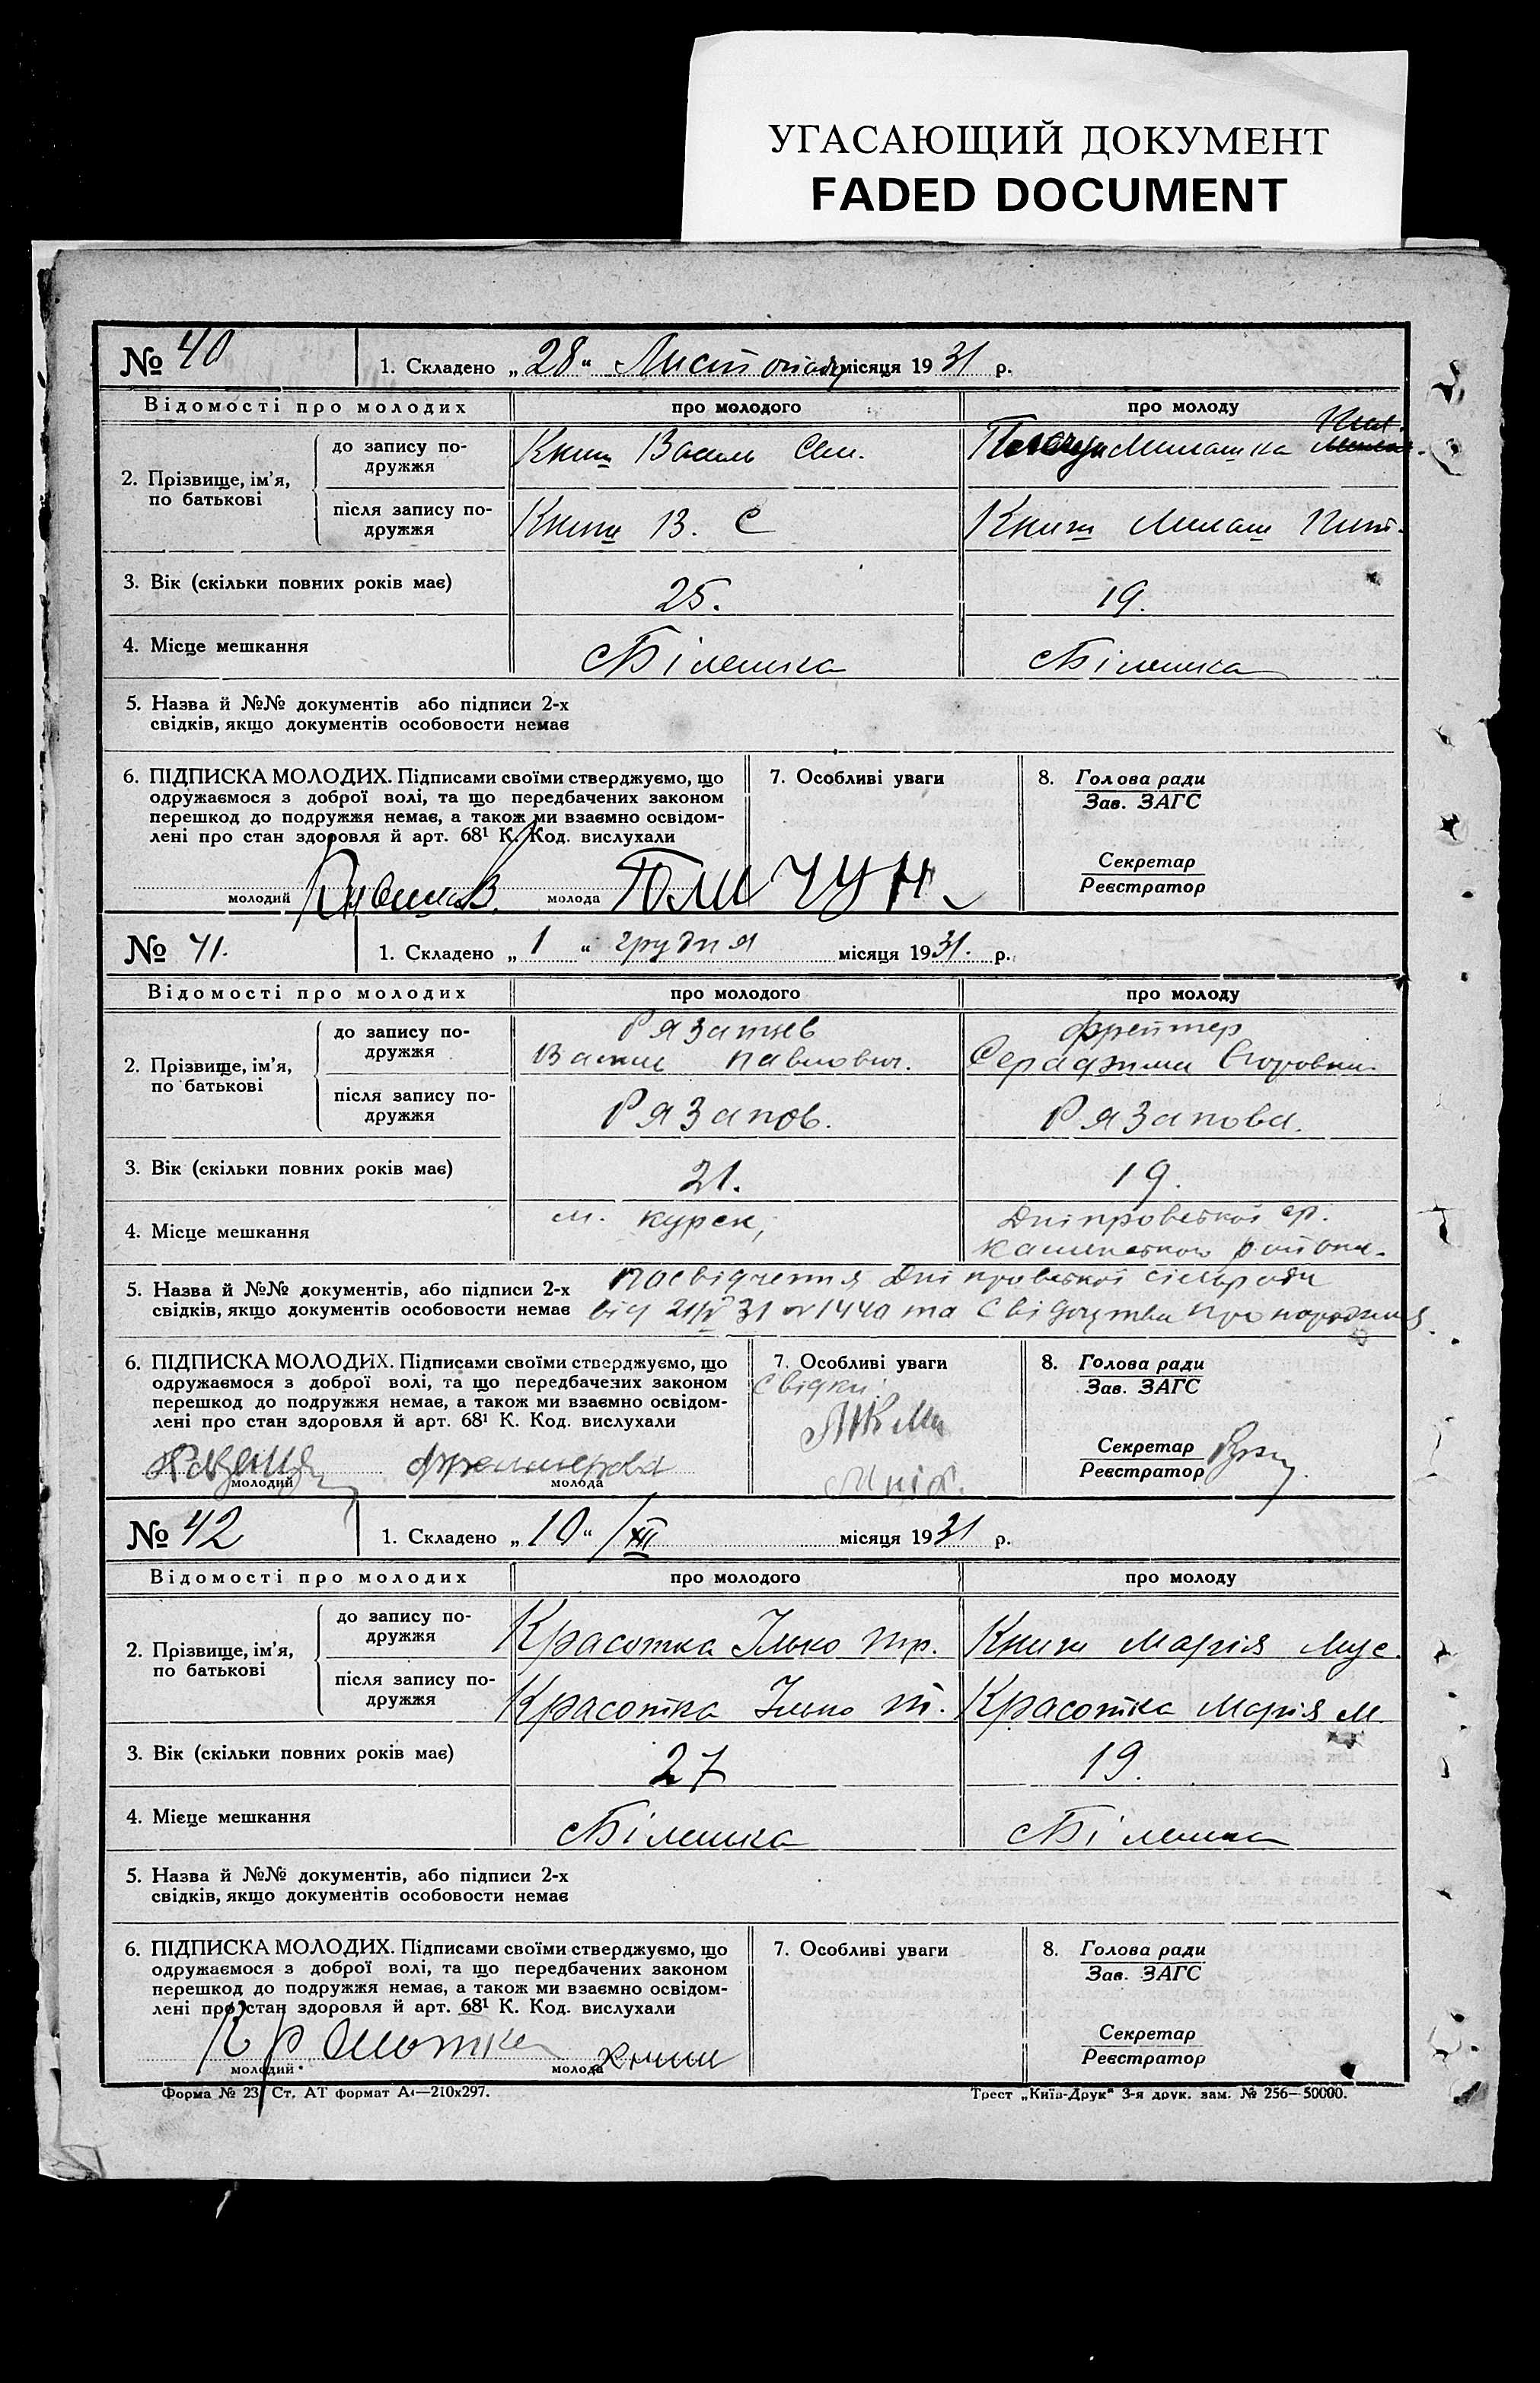 УГАСАЮЩИЙ ДОКУМЕНТ
FADED DOCUMENT
№ 40
1. Складено „28“ Листопаду місяця 1931 р.
Відомості про молодих
про молодого
про молоду
2. Прізвище, ім’я, по батькові
до запису по-
дружжя
Книш Василь Сем.
Милашка
після запису по-
дружжя
Книш В. С
Книш Милаш Пит.
3. Вік (скільки повних років має)
25.
19.
4. Місце мешкання
с Білешка
с Білешка
5. Назва й №№ документів або підписи 2-х
свідків, якщо документів особовости немає
6. ПІДПИСКА МОЛОДИХ. Підписами своїми стверджуємо, що
одружаємося з доброї волі, та що передбачених законом
перешкод до подружжя немає, а також ми взаємно освідом-
лені про стан здоровля й арт. 68¹ К. Код. вислухали
молодий
молода
7. Особливі уваги
8. Голова ради
Зав. ЗАГС
Секретар
Реєстратор
№ 41.
1. Складено „1“ грудня місяця 1931. р.
Відомості про молодих
про молодого
про молоду
2. Прізвище, ім’я,
по батькові
до запису по-
дружжя
Василь Павлович.
Фрейтер
Серафима Егоровна
після запису по-
дружжя
Рязанов.
Рязанова.
3. Вік (скільки повних років має)
21.
19.
4. Місце мешкання
м. Курськ,
Дніпровської ср.
району.
5. Назва й №№ документів, або підписи 2-х
свідків, якщо документів особовости немає
Посвідчення Дніпровської сільради
від 31 № 1440 та Свідоцтва про народження
6. ПІДПИСКА МОЛОДИХ. Підписами своїми стверджуємо, що
одружаємося з доброї волі, та що передбачених законом
перешкод до подружжя немає, а також ми взаємно освідом-
лені про стан здоровля й арт. 68¹ К. Код. вислухали
молодий
молода
7. Особливі уваги
Свідки
8. Голова ради
Зав. ЗАГС
Секретар
Реєстратор
№ 42
1. Складено „10“ /XII місяця 1931 р.
Відомості про молодих
про молодого
про молоду
2. Прізвище, ім’я,
по батькові
до запису по-
дружжя
Красотка Ілько Тр.
Книш Марія Мус.
після запису по-
дружжя
Красотка Ілько Т.
Красотка Марія М.
3. Вік (скільки повних років має)
27
19.
4. Місце мешкання
с Білешка
с Білешка
5. Назва й №№ документів, або підписи 2-х
свідків, якщо документів особовости немає
6. ПІДПИСКА МОЛОДИХ. Підписами своїми стверджуємо, що
одружаємося з доброї волі, та що передбачених законом
перешкод до подружжя немає, а також ми взаємно освідом-
лені про стан здоровля й арт. 68¹ К. Код. вислухали
молодий
молода
Книш
7. Особливі уваги
8. Голова ради
Зав. ЗАГС
Секретар
Реєстратор
Форма № 23, Ст. АТ формат А4—210x297.
Трест „Київ-Друк“ 3-я друк. зам. № 256—50000.